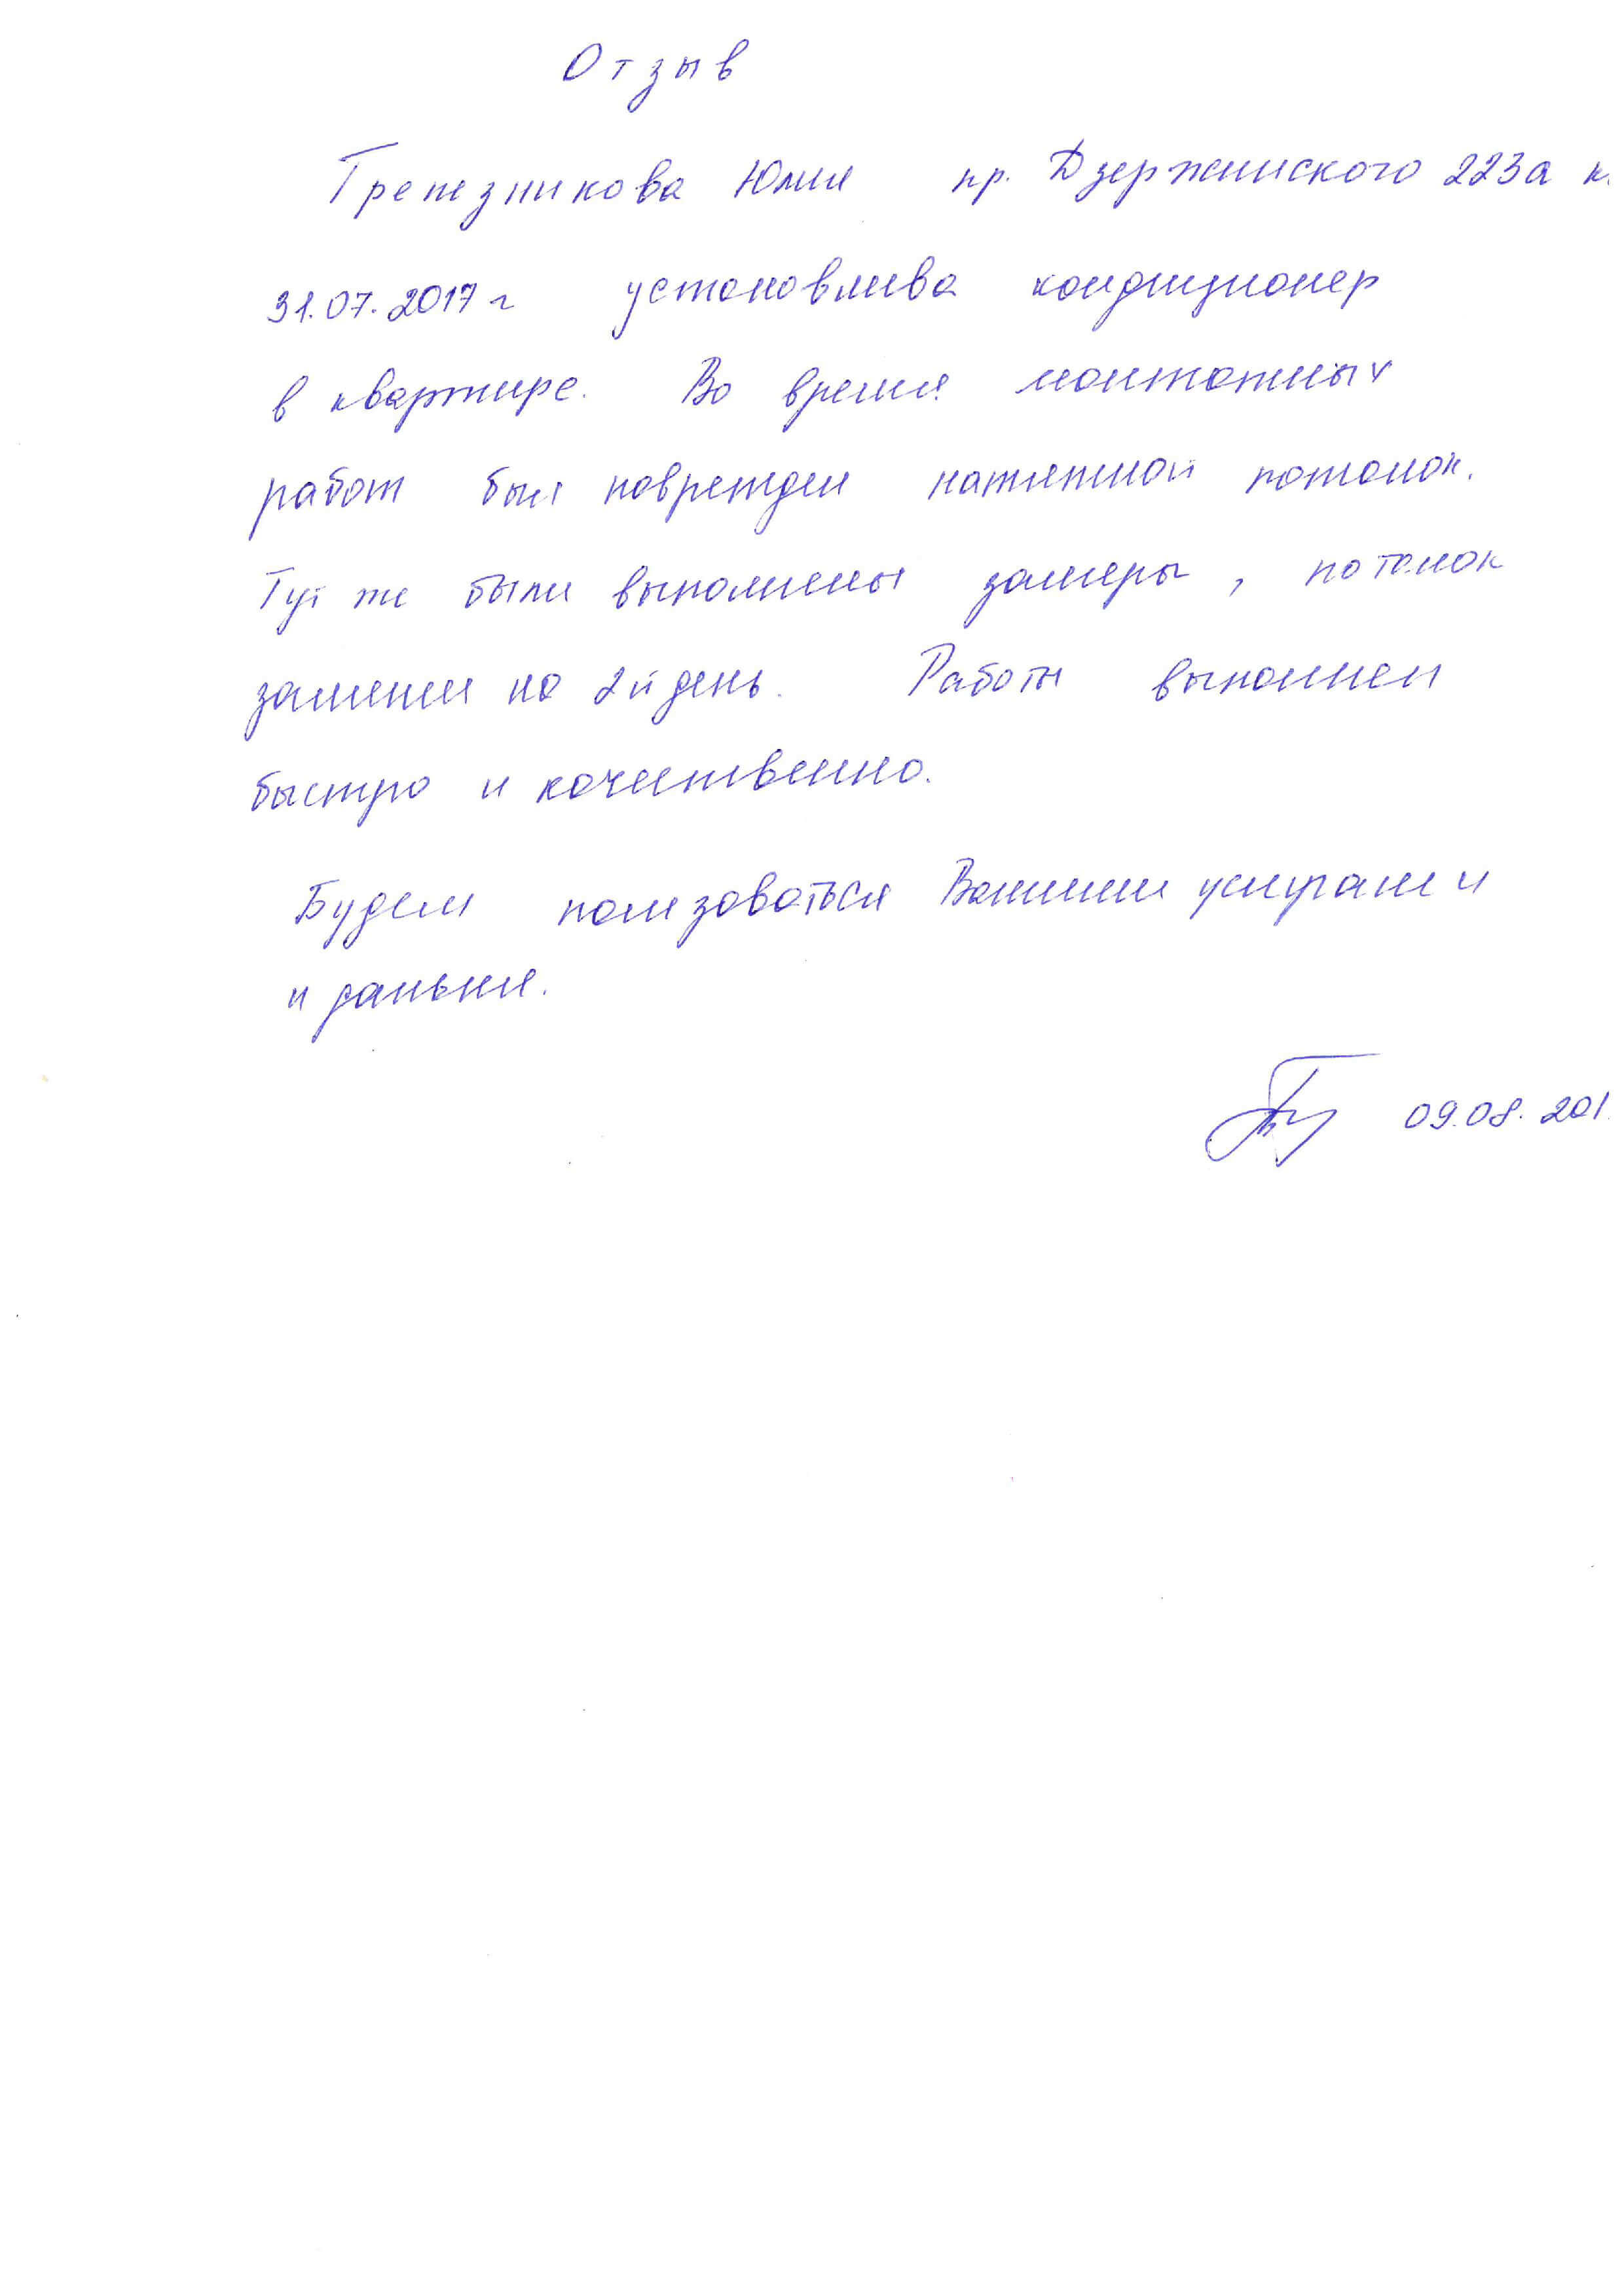 Отзыв
Трепезникова Юлия пр. Дзержинского 223а к
31.07.2017г установлива кондиционер
в квартире. Во время монтажных
работ был поврежден натяжной потолок.
Тут же были выполнены замеры, потолок
заменен на 2й день. Работы выполнен
быстро и качественно.
Будем пользоваться Вашими услугами
и дальше.
09.08.201